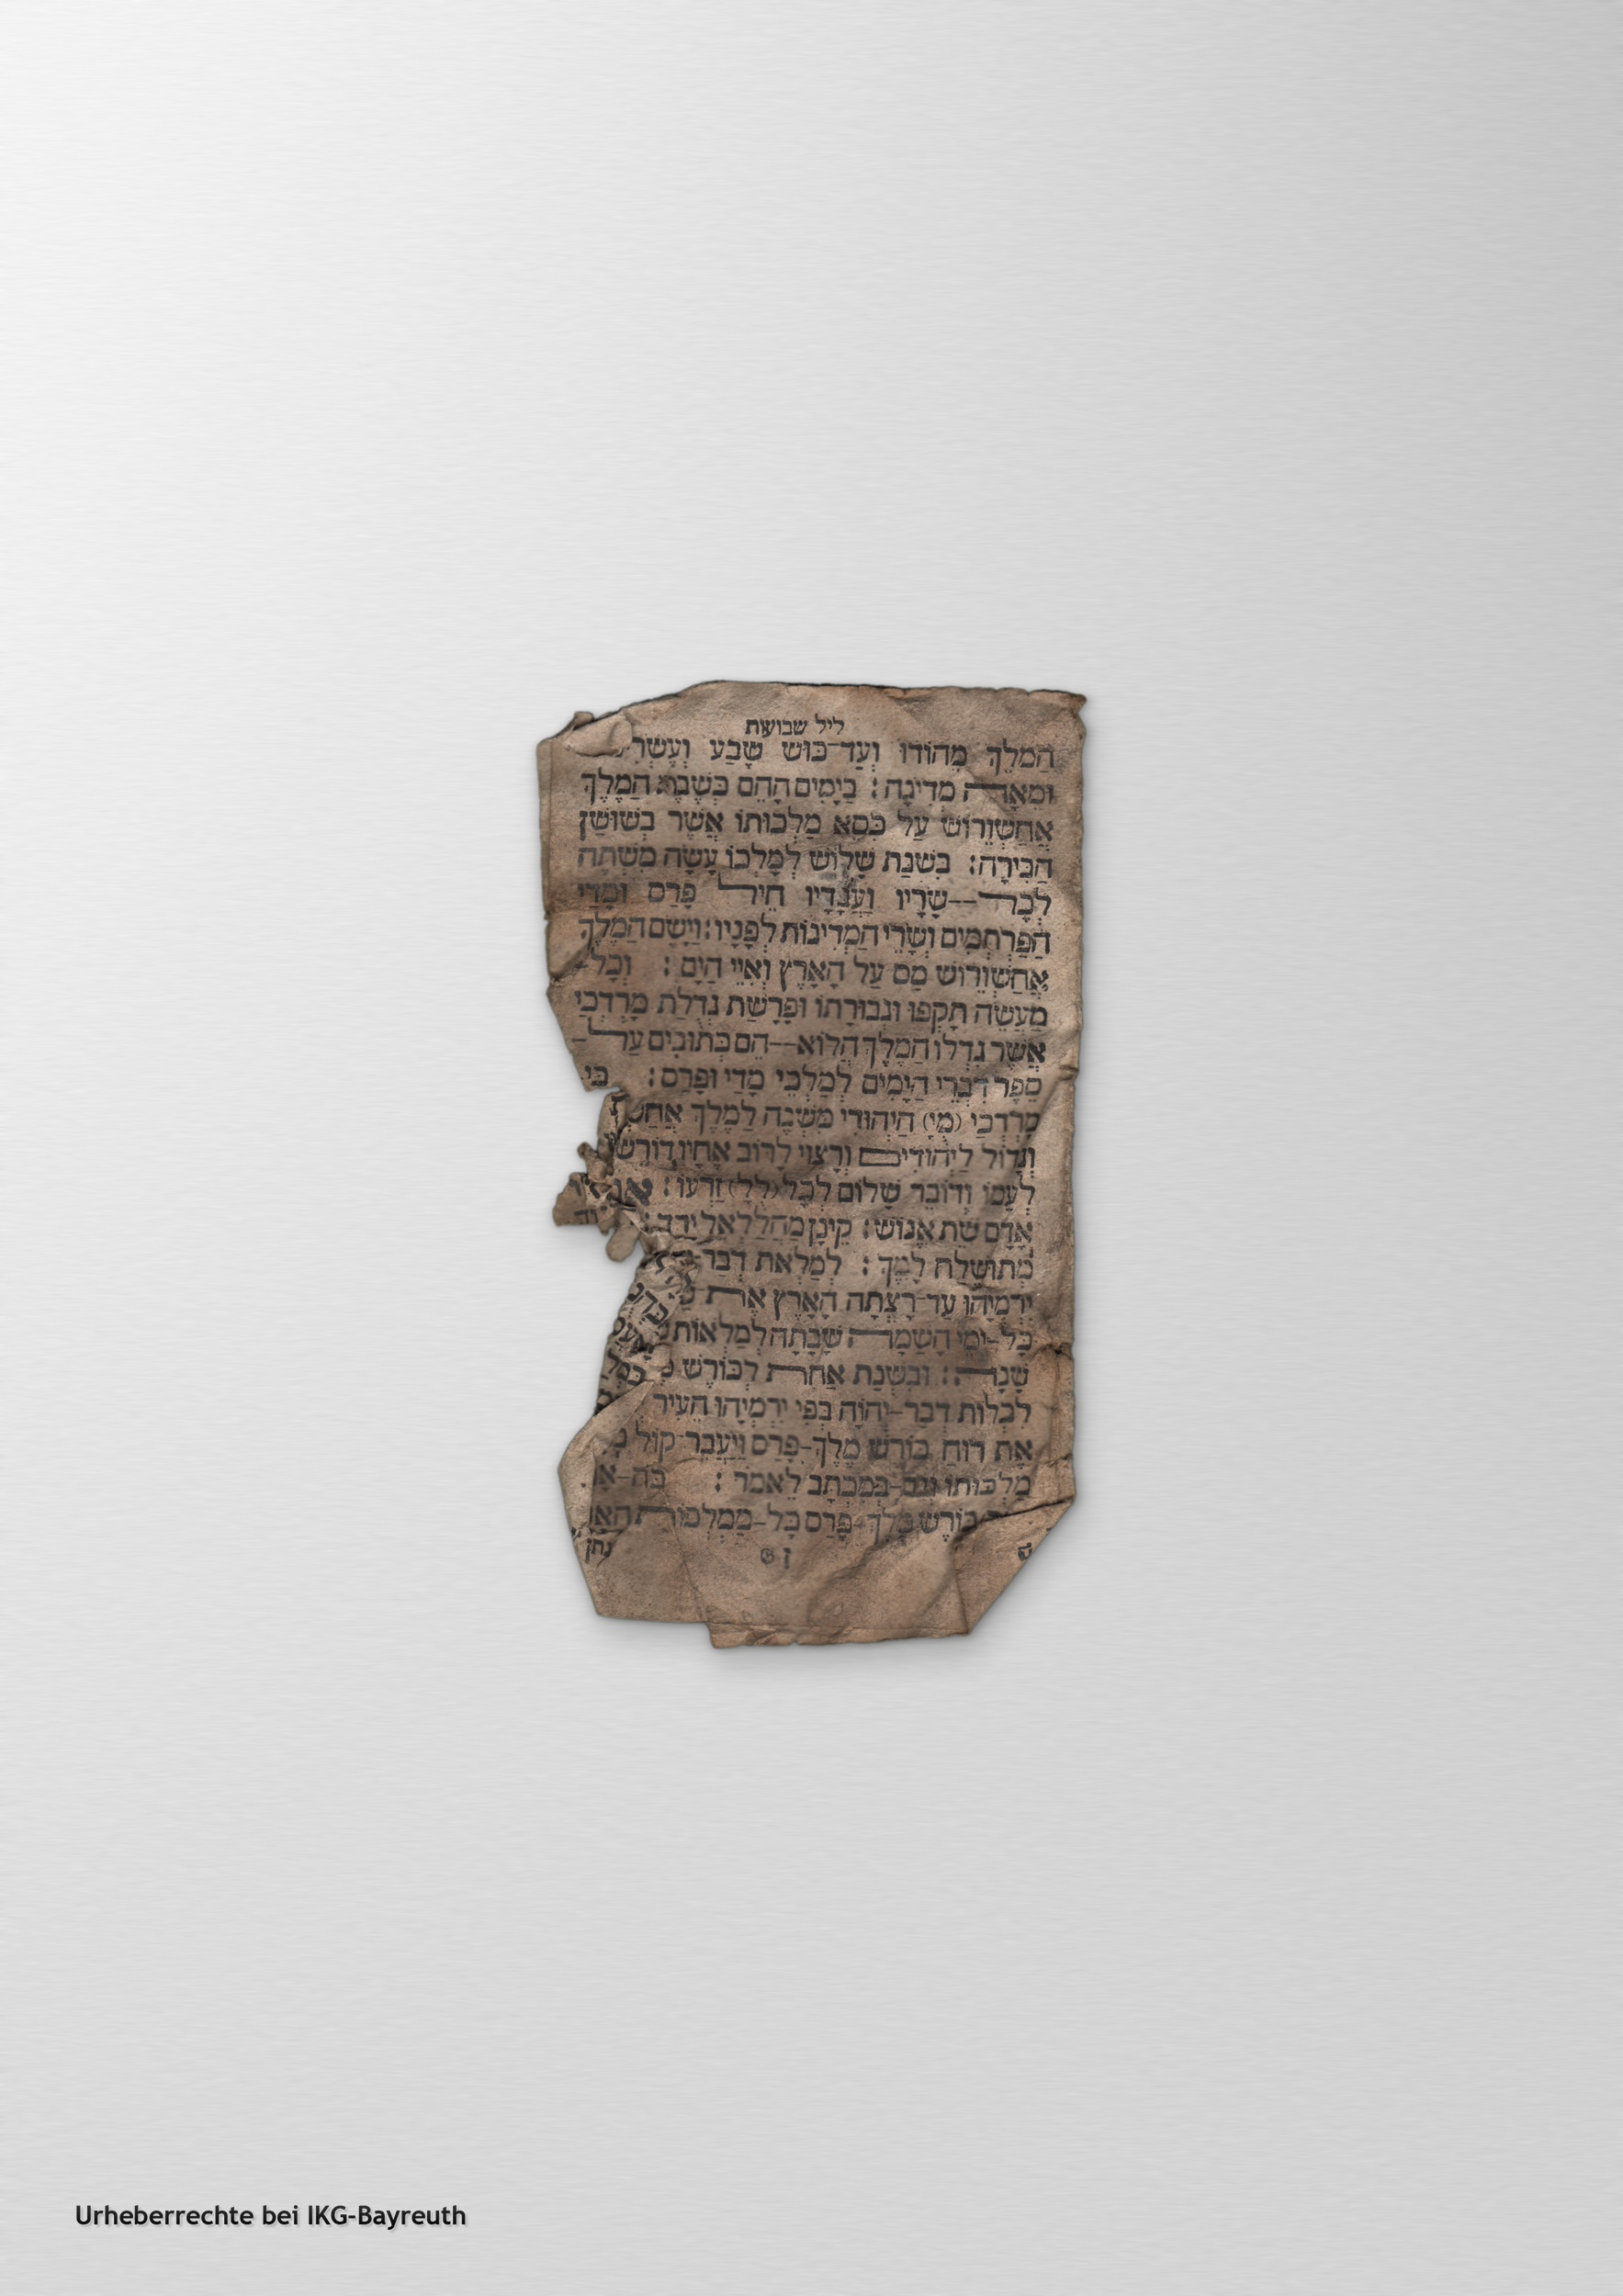 ליל שבועות
הַמֹּלֵךְ מֵהוֹדוּ וְעַד־כּוּשׁ שֶׁבַע וְעֶשְׂרִ
וּמֵאָה מְדִינָה: בַּיָּמִים הָהֵם כְּשֶׁבֶת הַמֶּלֶךְ
אֲחַשְׁוֵרוֹשׁ עַל כִּסֵּא מַלְכוּתוֹ אֲשֶׁר בְּשׁוּשַׁן
הַבִּירָה: בִּשְׁנַת שָׁלוֹשׁ לְמָלְכוֹ עָשָׂה מִשְׁתֶּה
לְכָל--שָׂרָיו וַעֲבָדָיו חֵיל פָּרַס וּמָדַי
הַפַּרְתְּמִים וְשָׂרֵי הַמְּדִינוֹת לְפָנָיו: וַיָּשֶׂם הַמֶּלֶךְ
אֲחַשְׁוֵרוֹשׁ מַס עַל הָאָרֶץ וְאִיֵּי הַיָּם: וְכָל-
מַעֲשֵׂה תָקְפּוֹ וּגְבוּרָתוֹ וּפָרָשַׁת גְּדֻלַּת מָרְדֳּכַי
אֲשֶׁר גִּדְּלוֹ הַמֶּלֶךְ הֲלוֹא--הֵם כְּתוּבִים עַל-
סֵפֶר דִּבְרֵי הַיָּמִים לְמַלְכֵי מָדַי וּפָרָס: כִּי
מָרְדֳּכַי (מִי) הַיְּהוּדִי מִשְׁנֶה לַמֶּלֶךְ אֲחַשְׁ
וְגָדוֹל לַיְּהוּדִים וְרָצוּי לְרוֹב אֶחָיו דּוֹרֵשׁ
לְעַמּוֹ וְדוֹבֵר שָׁלוֹם לְכָל (לְל) זַרְעוֹ:
אָדָם שֵׁת אֱנוֹשׁ: קֵינָן מַהֲלַלְאֵל יָרֶד:
מְתוּשֶׁלַח לָמֶךְ: לְמַלֹּאת דְּבַר-
יִרְמְיָהוּ עַד־רָצְתָה הָאָרֶץ אֶת
כָּל-יְמֵי הָשַּׁמָּה שָׁבָתָה לְמַלֹּאות
שָׁנָה: וּבִשְׁנַת אַחַת לְכוֹרֶשׁ מֶ
לִכְלוֹת דְּבַר-יְהוָה בְּפִי יִרְמְיָהוּ הֵעִיר
אֶת רוּחַ כּוֹרֶשׁ מֶלֶךְ-פָּרַס וַיַּעֲבֶר־קוֹל
מַלְכוּתוֹ וְגַם-בְּמִכְתָּב לֵאמֹר: כֹּה-אָ
כּוֹרֶשׁ מֶלֶךְ-פָּרַס כָּל-מַמְלְכוֹת הָאָ
ז נתן
Urheberrechte bei IKG-Bayreuth